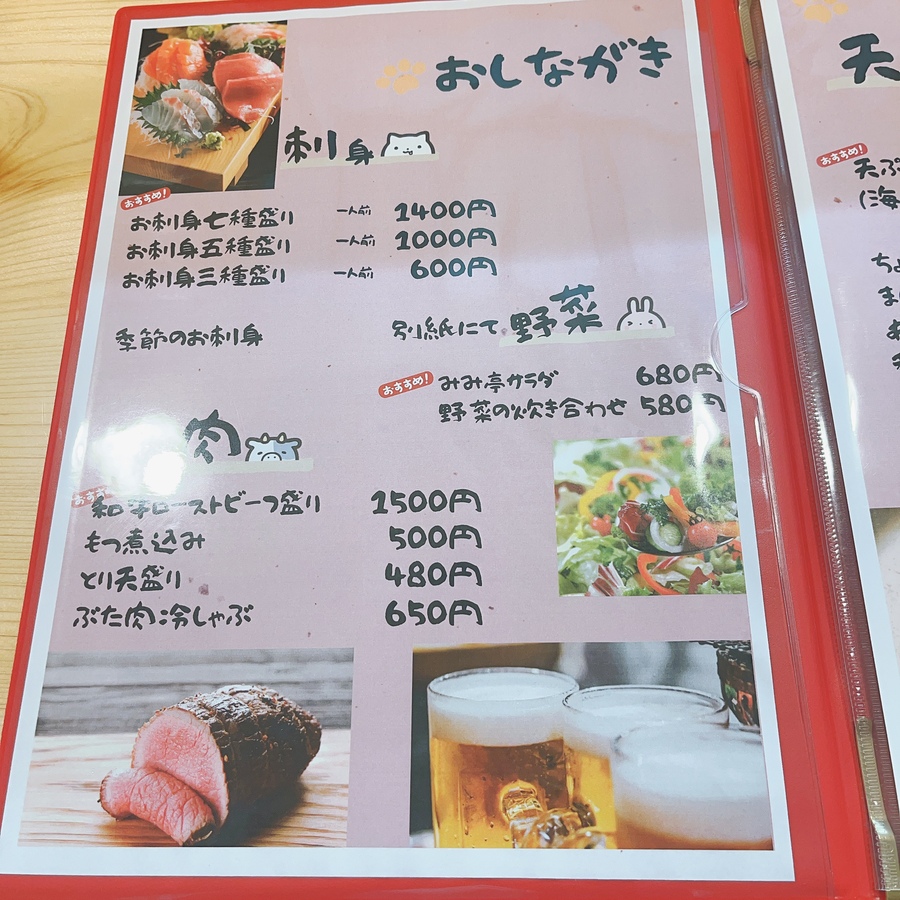 おしながき
刺身
おすすめ!
お刺身七種盛り 一人前 1400円
お刺身五種盛り 一人前 1000円
お刺身三種盛り 一人前 600円
季節のお刺身 別紙にて
野菜
おすすめ!
みみ亭サラダ 680円
野菜の炊き合わせ 580円
肉
おすす
和牛ローストビーフ盛り 1500円
もつ煮込み 500円
とり天盛り 480円
ぶた肉冷しゃぶ 650円
天
おすすめ!
天ぷ
(海
ちょ